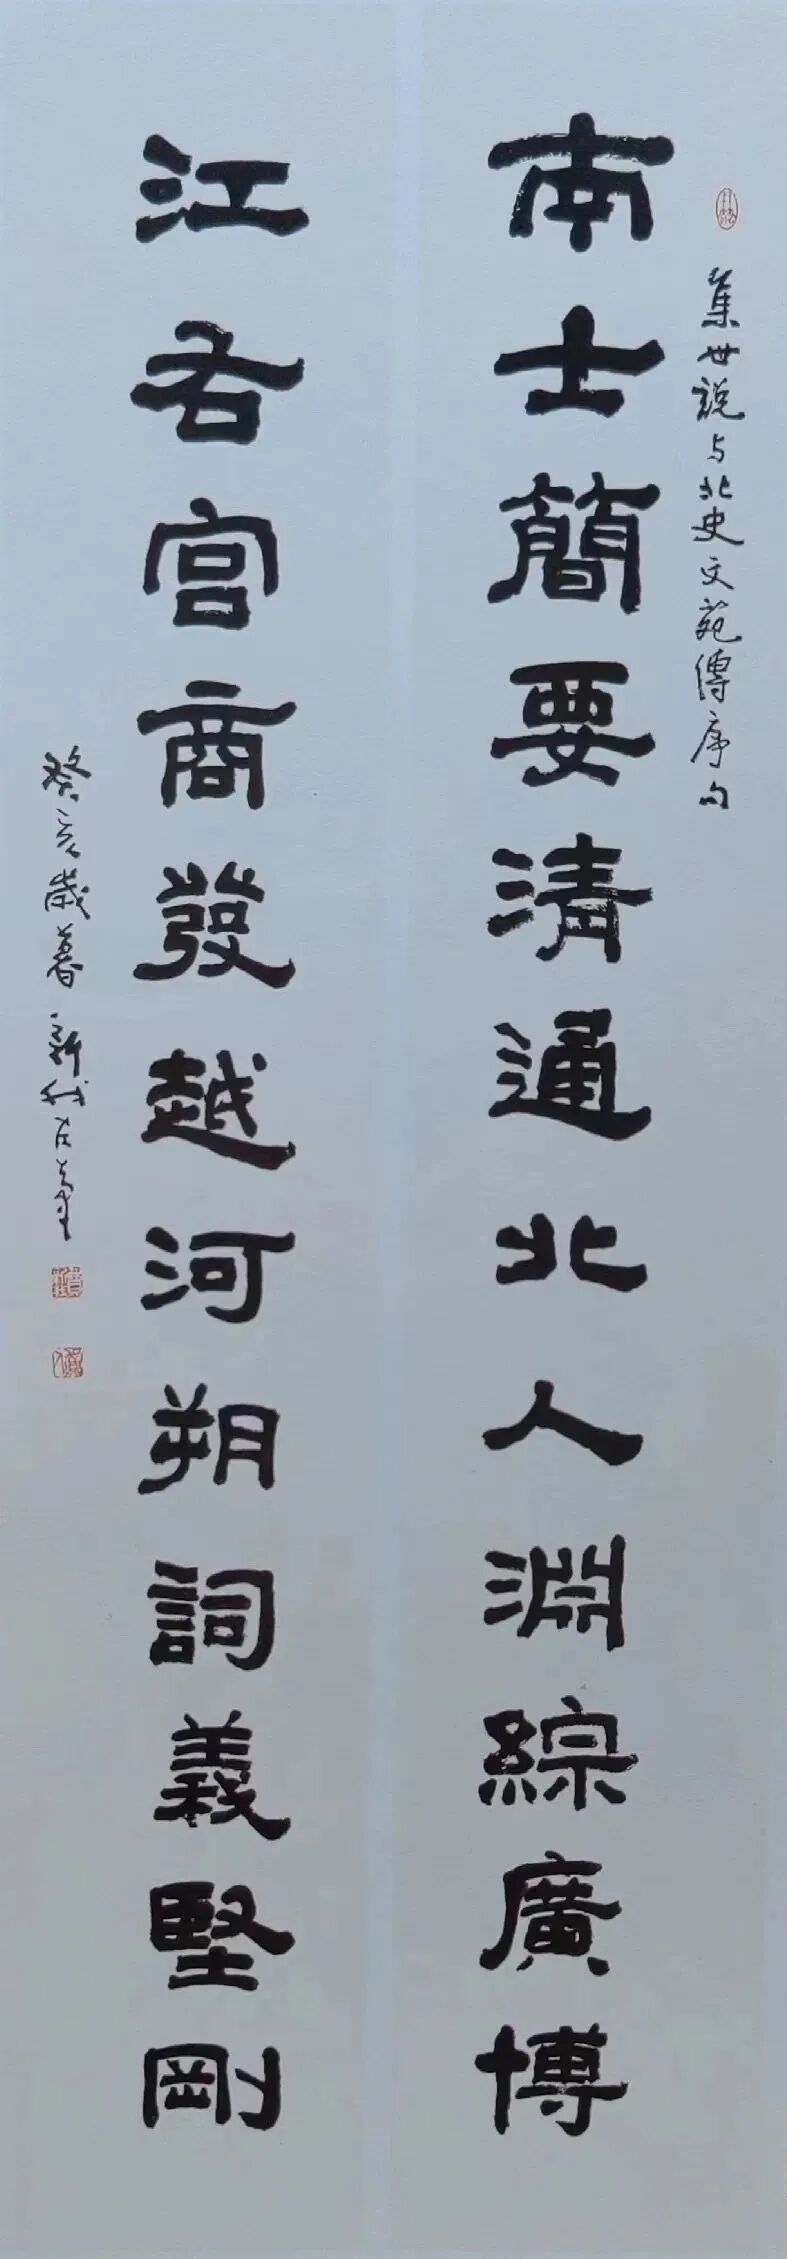 集世說与北史文苑傳序句
南士簡要清通北人淵綜廣博
江右宮商發越河朔詞義堅剛
癸亥歲暮